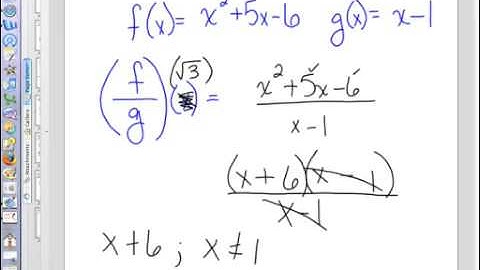 f(x) = x²+5x-6 g(x) = x-1
(f/g)(√3) = (x²+5x-6)/(x-1)
(x+6)(x-1)/(x-1)
x+6 ; x≠1